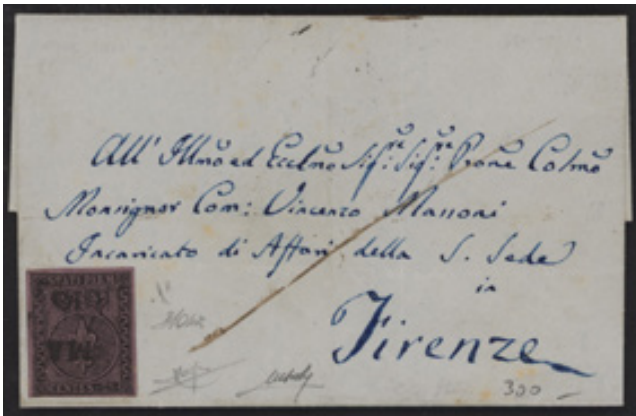 All' Illmo ed Ecclmo Sigre: Sigre: Prone Colmo
Monsignor Com: Vincenzo Massoni
Incaricato di Affari della S. Sede
in
Firenze
STATI PARM
CENTES
300